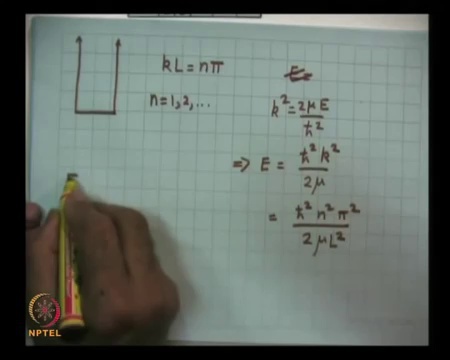 kL = nπ
n = 1, 2, ...
E =
k² = 2μE / ħ²
⇒ E = ħ²k² / 2μ
= ħ²n²π² / 2μL²
E
NPTEL